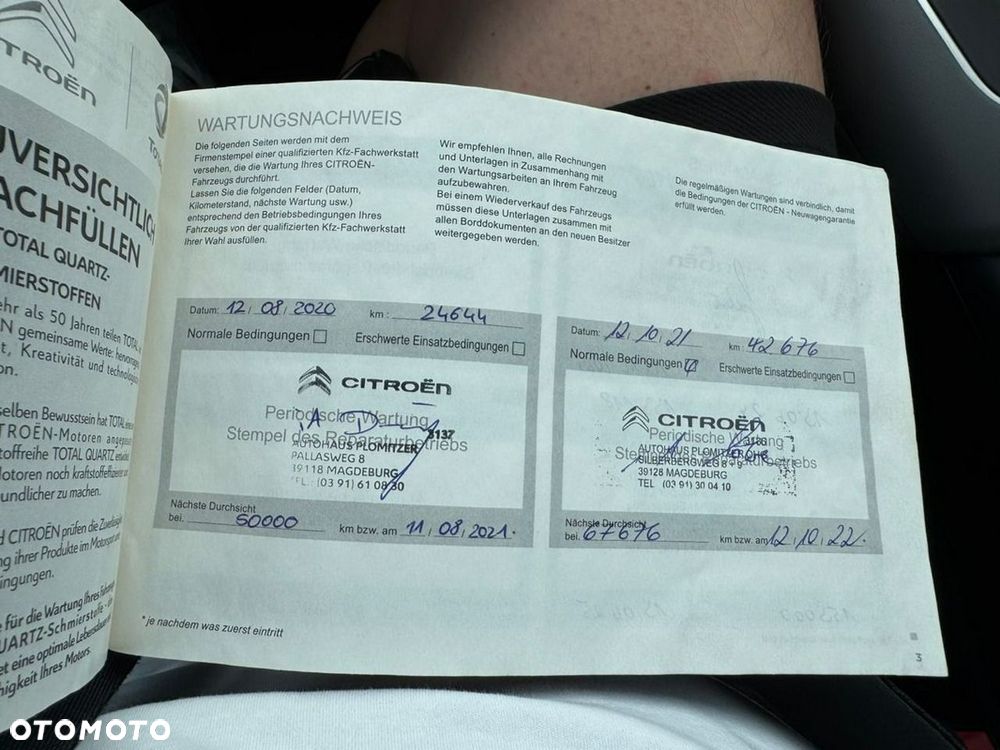 CITROËN
TOTAL
UVERSICHTLICH
ACHFÜLLEN
TOTAL QUARTZ-
MIERSTOFFEN
ehr als 50 Jahren teilen TOTAL
EN gemeinsame Werte: hervorragen
t, Kreativität und technologis
on.
selben Bewusstsein hat TOTAL
TROËN-Motoren angepasst
stoffreihe TOTAL QUARTZ
Motoren noch kraftstoffeffizienter
undlicher zu machen.
CITROËN prüfen die Zuverlässigkeit
ng ihrer Produkte im Motorsport
ingungen.
für die Wartung Ihres Fahrzeugs
QUARTZ-Schmierstoffe
et eine optimale Lebensdauer
higkeit Ihres Motors.
WARTUNGSNACHWEIS
Die folgenden Seiten werden mit dem
Firmenstempel einer qualifizierten Kfz-Fachwerkstatt
versehen, die die Wartung Ihres CITROËN-
Fahrzeugs durchführt.
Lassen Sie die folgenden Felder (Datum,
Kilometerstand, nächste Wartung usw.)
entsprechend den Betriebsbedingungen Ihres
Fahrzeugs von der qualifizierten Kfz-Fachwerkstatt
Ihrer Wahl ausfüllen.
Wir empfehlen Ihnen, alle Rechnungen
und Unterlagen in Zusammenhang mit
den Wartungsarbeiten an Ihrem Fahrzeug
aufzubewahren.
Bei einem Wiederverkauf des Fahrzeugs
müssen diese Unterlagen zusammen mit
allen Borddokumenten an den neuen Besitzer
weitergegeben werden.
Die regelmäßigen Wartungen sind verbindlich, damit
die Bedingungen der CITROËN - Neuwagengarantie
erfüllt werden.
Datum: 12 / 08 / 2020 km : 24644
Normale Bedingungen Erschwerte Einsatzbedingungen
CITROËN
Periodische Wartung
Stempel des Reparaturbetriebs
3137
AUTOHAUS PLOMITZER
PALLASWEG 8
39118 MAGDEBURG
TEL.: (03 91) 61 08 30
Nächste Durchsicht
bei. 50000 km bzw. am 11 / 08 / 2021.
Datum: 12 / 10 / 21 km 42676
Normale Bedingungen Erschwerte Einsatzbedingungen
CITROËN
Periodische Wartung
Stempel des Reparaturbetriebs
AUTOHAUS PLOMITZER OHG
SILBERBERGWEG 8+9
39128 MAGDEBURG
TEL (03 91) 30 04 10
Nächste Durchsicht
bei. 67676 km bzw. am 12 / 10 / 22.
* je nachdem was zuerst eintritt
3
OTOMOTO